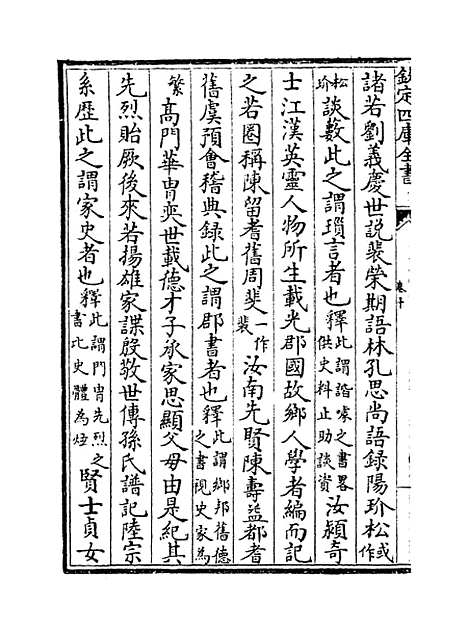 欽定四庫全書
卷十
諸若劉義慶世說裴榮期語林孔思尚語錄陽玠松或作
松玠談藪此之謂瑣言者也釋此謂諧噱之書畧供史料止助談資汝潁奇
士江漢英靈人物所生載光郡國故鄉人學者編而記
之若圈稱陳留耆舊周斐一作裴汝南先賢陳壽益都耆
舊虞預會稽典錄此之謂郡書者也釋此謂鄉邦舊德之書視史家為
繁高門華胄奕世載德才子承家思顯父母由是紀其
先烈貽厥後來若揚雄家諜殷敬世傳孫氏譜記陸宗
系歷此之謂家史者也釋此謂門胄先烈之書比史體為賢士貞女